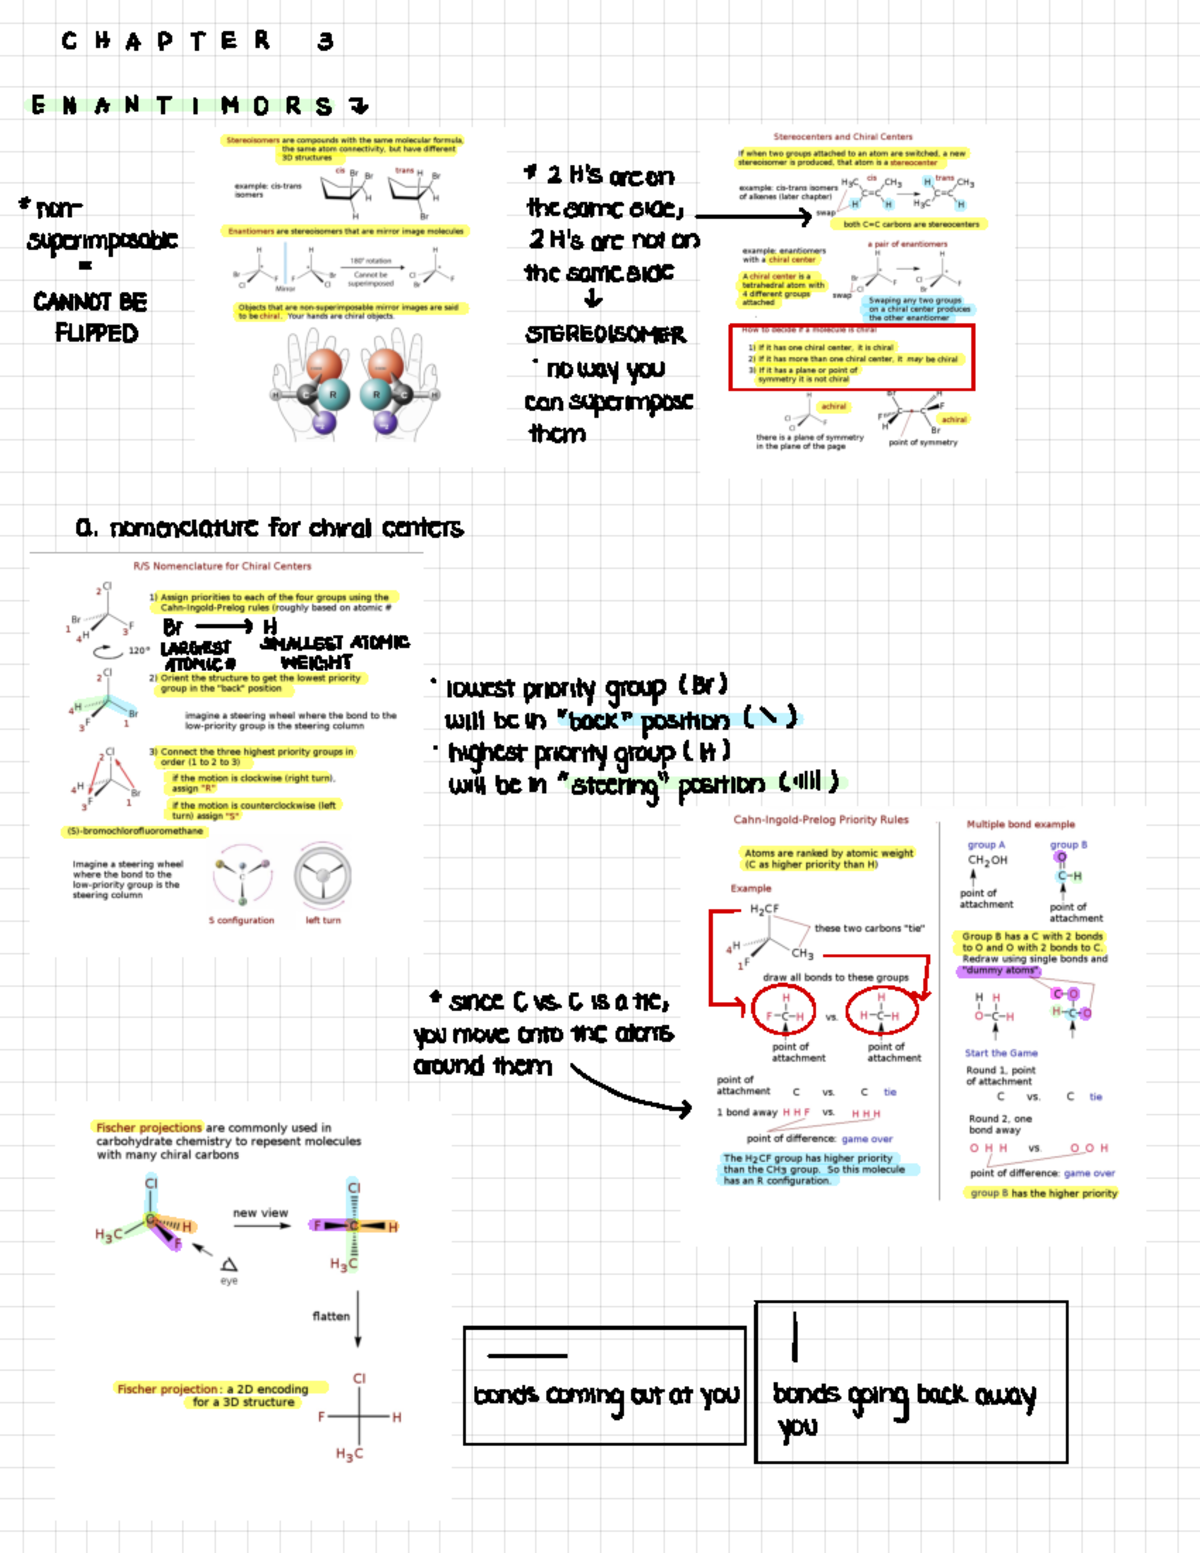 CHAPTER 3
ENANTIMORS
* non-
superimposable
=
CANNOT BE
FLIPPED
Stereoisomers are compounds with the same molecular formula,
the same atom connectivity, but have different
3D structures
example: cis-trans
isomers
cis Br Br H H
trans H Br H Br
Enantiomers are stereoisomers that are mirror image molecules
H Br Cl F
Mirror
H F Br Cl
180° rotation
Cannot be
superimposed
H Cl Br F
Objects that are non-superimposable mirror images are said
to be chiral. Your hands are chiral objects.
H C R
R C H
* 2 H's are on
the same side,
2 H's are not on
the same side
STEREOISOMER
· no way you
can superimpose
them
Stereocenters and Chiral Centers
If when two groups attached to an atom are switched, a new
stereoisomer is produced, that atom is a stereocenter
example: cis-trans isomers
of alkenes (later chapter)
swap
cis
H₃C CH₃
C=C
H H
trans
H CH₃
C=C
H₃C H
both C=C carbons are stereocenters
example: enantiomers
with a chiral center
a pair of enantiomers
A chiral center is a
tetrahedral atom with
4 different groups
attached
swap
H Br Cl F
H Cl Br F
Swaping any two groups
on a chiral center produces
the other enantiomer
How to decide if a molecule is chiral
1) If it has one chiral center, it is chiral
2) If it has more than one chiral center, it may be chiral
3) If it has a plane or point of
symmetry it is not chiral
H Cl Cl F
achiral
there is a plane of symmetry
in the plane of the page
Br F H C C F H Br
achiral
point of symmetry
a. nomenclature for chiral centers
R/S Nomenclature for Chiral Centers
2 Cl
Br 1
4 H
3 F
120°
1) Assign priorities to each of the four groups using the
Cahn-Ingold-Prelog rules (roughly based on atomic #
Br H
LARGEST
ATOMIC #
SMALLEST ATOMIC
WEIGHT
2) Orient the structure to get the lowest priority
group in the "back" position
2 Cl
4 H
3 F
Br 1
imagine a steering wheel where the bond to the
low-priority group is the steering column
3) Connect the three highest priority groups in
order (1 to 2 to 3)
2 Cl
4 H
3 F
Br 1
if the motion is clockwise (right turn),
assign "R"
if the motion is counterclockwise (left
turn) assign "S"
(S)-bromochlorofluoromethane
Imagine a steering wheel
where the bond to the
low-priority group is the
steering column
S configuration
left turn
· lowest priority group (Br)
will be in "back" position ( )
· highest priority group (H)
will be in "steering" position ( )
Cahn-Ingold-Prelog Priority Rules
Atoms are ranked by atomic weight
(C as higher priority than H)
Example
H₂CF
4 H
1 F
CH₃
these two carbons "tie"
draw all bonds to these groups
H
F-C-H
vs.
H
H-C-H
point of
attachment
point of
attachment
point of
attachment C vs. C tie
1 bond away H H F vs. H H H
point of difference: game over
The H₂CF group has higher priority
than the CH₃ group. So this molecule
has an R configuration.
Multiple bond example
group A
CH₂OH
point of
attachment
group B
O
C-H
point of
attachment
Group B has a C with 2 bonds
to O and O with 2 bonds to C.
Redraw using single bonds and
"dummy atoms"
H H
O-C-H
C-O
H-C-O
Start the Game
Round 1, point
of attachment
C vs. C tie
Round 2, one
bond away
O H H vs. O O H
point of difference: game over
group B has the higher priority
* since C vs. C is a tie,
you move onto the atoms
around them
Fischer projections are commonly used in
carbohydrate chemistry to repesent molecules
with many chiral carbons
Cl
C H
H₃C F
eye
new view
Cl
F C H
H₃C
flatten
Fischer projection: a 2D encoding
for a 3D structure
Cl
F H
H₃C
bonds coming out at you
bonds going back away
you